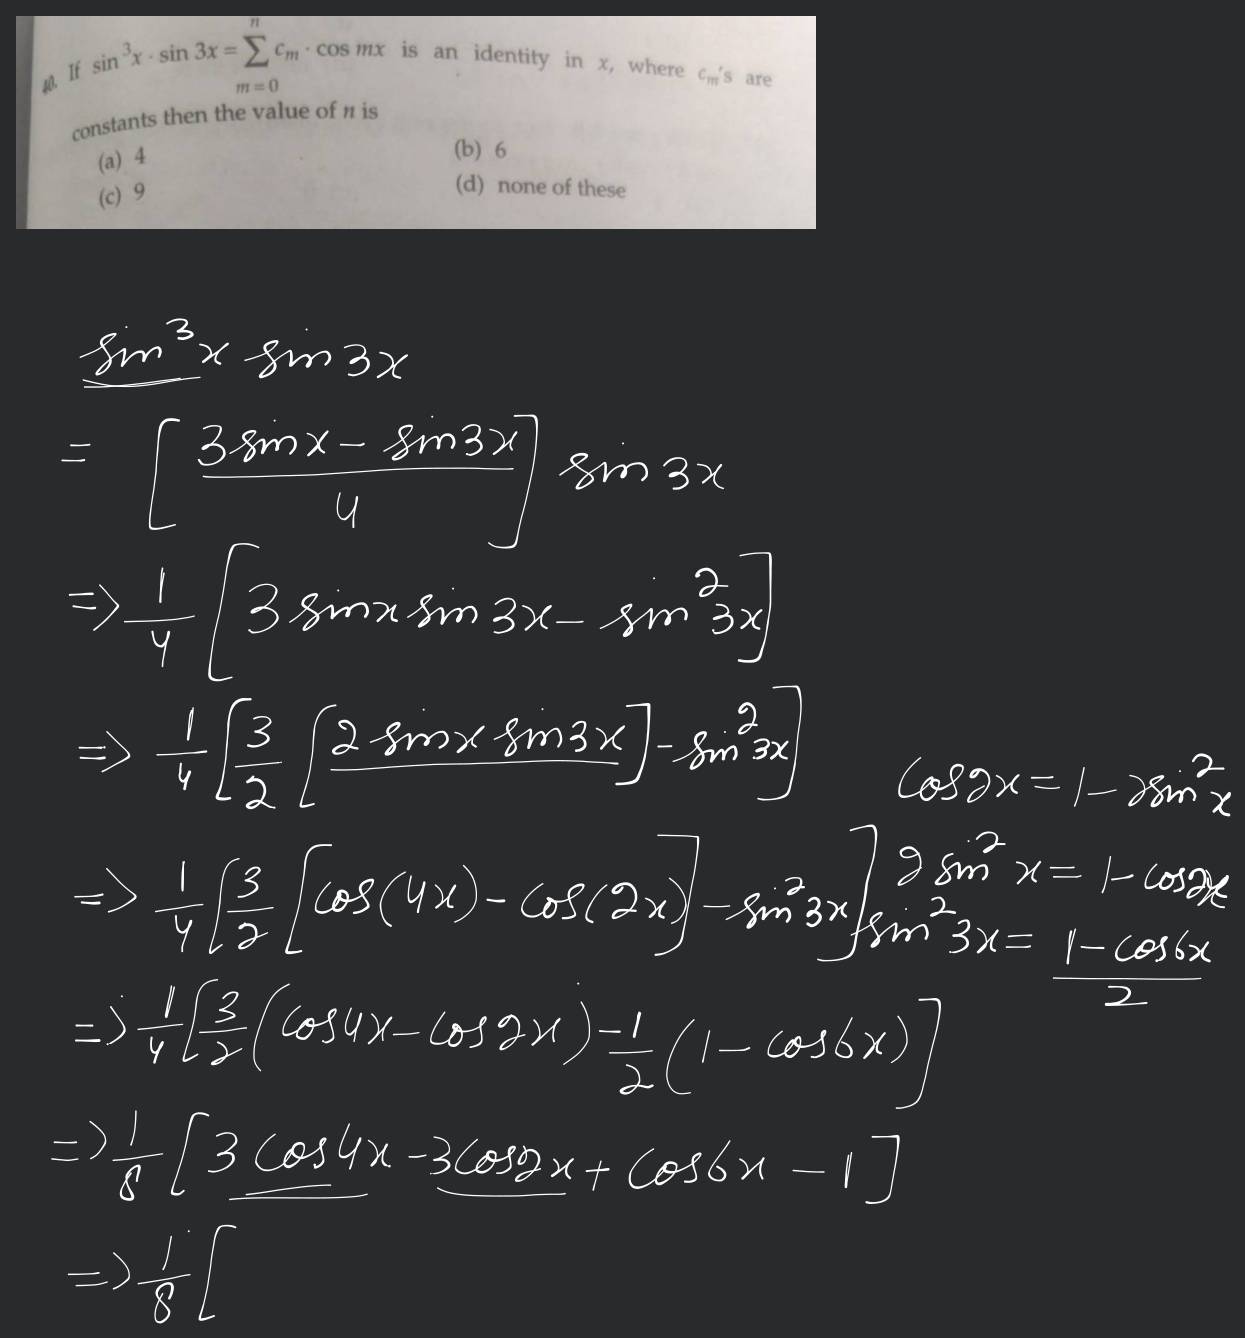 40. If sin³x · sin 3x = ∑_{m=0}^{n} c_m · cos mx is an identity in x, where c_m's are
constants then the value of n is
(a) 4 (b) 6
(c) 9 (d) none of these
sin³x sin 3x
= [ (3 sin x − sin 3x) / 4 ] sin 3x
=> 1/4 [ 3 sin x sin 3x − sin² 3x ]
=> 1/4 [ 3/2 [ 2 sin x sin 3x ] − sin² 3x ]
cos 2x = 1 − 2 sin² x
=> 1/4 [ 3/2 [ cos(4x) − cos(2x) ] − sin² 3x ]
2 sin² x = 1 − cos 2x
sin² 3x = (1 − cos 6x) / 2
=> 1/4 [ 3/2 ( cos 4x − cos 2x ) − 1/2 ( 1 − cos 6x ) ]
=> 1/8 [ 3 cos 4x − 3 cos 2x + cos 6x − 1 ]
=> 1/8 [